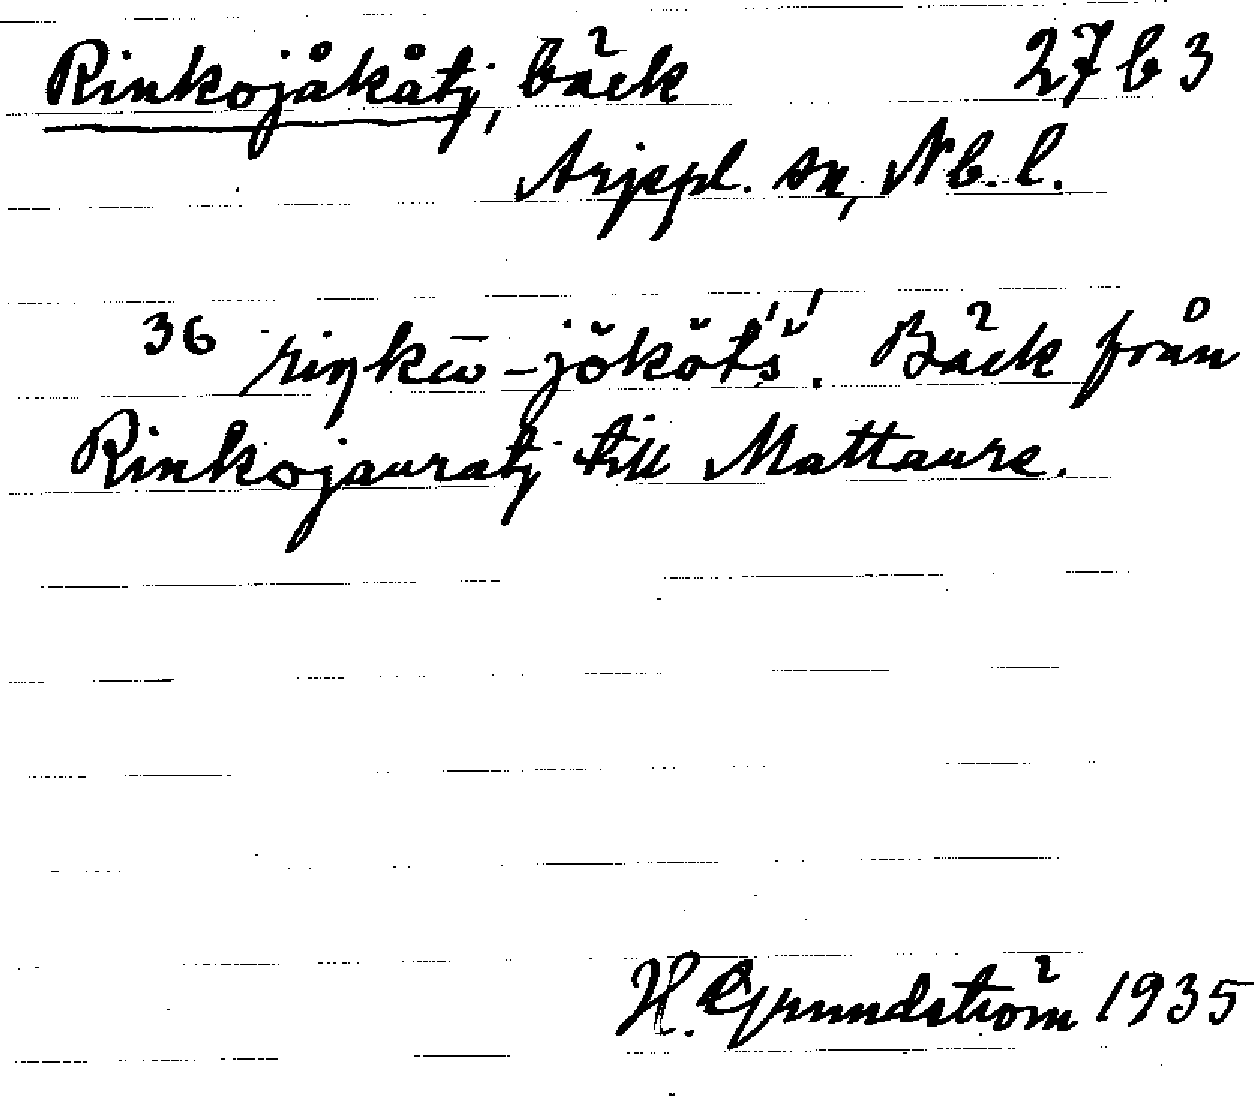 Rinkojåkåtj, bäck 27 b 3
Arjepl. sn, Nb. l.
36 Bäck från
Rinkojauratj till Mattaure.
H. Grundström 1935